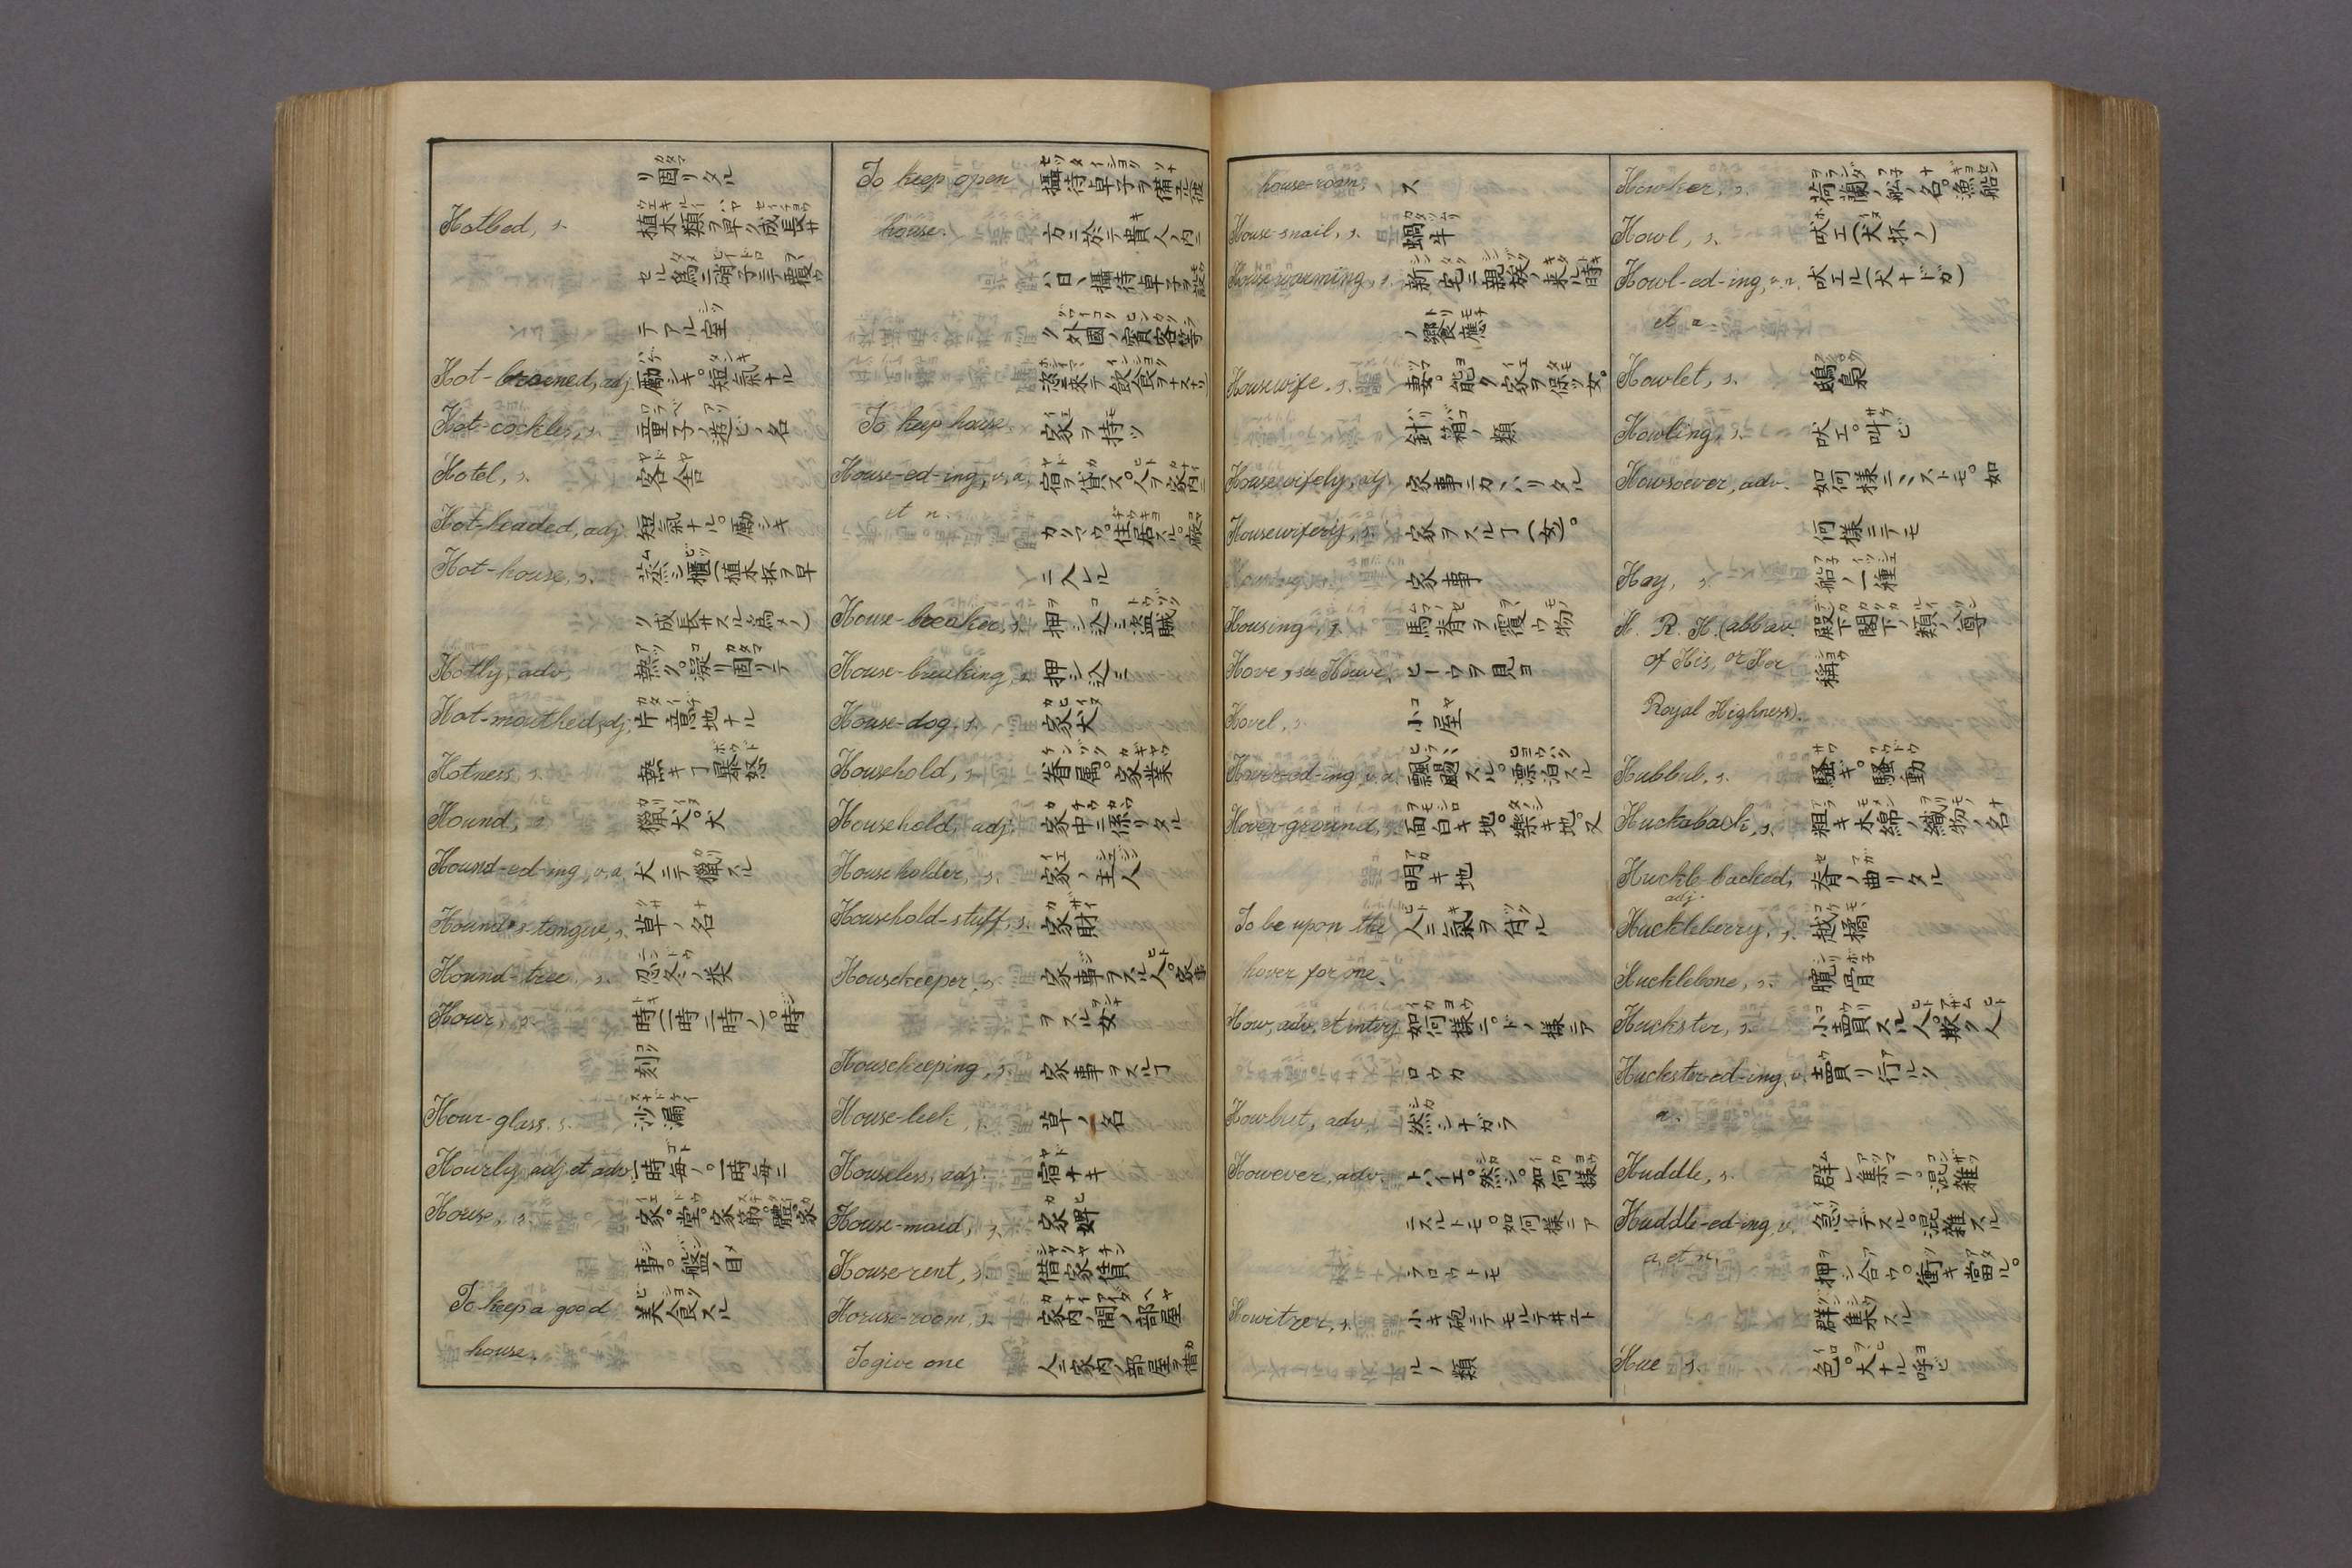 リ固リタル
Hotbed, s. 植木類ヲ早ク成長サ
セル為ニ硝子ニテ覆ウ
テアル室
Hot-brained, adj. 勵シキ。短氣ナル
Hot-cockles, s. 童子ノ遊ビノ名
Hotel, s. 客舎
Hot-headed, adj. 短氣ナル。勵シキ
Hot-house, s. 蒸シ櫃(植木杯ヲ早
ク成長サスル為メノ)
Hotly, adv. 熱ク。凝リ固リテ
Hot-mouthed, adj. 片意地ナル
Hotness, s. 熱キヿ暴怒
Hound, s. 獵犬。犬
Hound-ed-ing, v.a. 犬ニテ獵スル
Hound's-tongue, s. 草ノ名
Hound-tree, s. 忍冬ノ类
Hour, s. 時(一時二時ノ)。時
刻
Hour-glass, s. 沙漏
Hourly, adj. et adv. 一時毎ノ。一時毎ニ
House, s. 家。堂。家筋。體。家
事。盤ノ目
To keep a good 美食スル
house.
To keep open 攝待卓子ヲ備
house. 方ニ於テ貴人ノ内ニ
ハ日〻攝待卓子ヲ設
ク外國ノ賓客等
恣ニ来テ飲食ヲナス
To keep house 家ヲ持ツ
House-ed-ing, v.a. 宿ヲ貸ス。人ヲ家内ニ
et n. カクマウ。住居スル。廠
ニ入ヒル
House-breaker, s. 押シ込ミ盗賊
House-breaking, s. 押シ込ミ
House-dog, s. 家犬
Household, s. 眷属。家業
Household, adj. 家中ニ係リタル
Householder, s. 家ノ主人
Household-stuff, s. 家財
Housekeeper, s. 家事ヲスル人。家事
ヲスル女
Housekeeping, s. 家事ヲスルヿ
House-leek, s. 草ノ名
Houseless, adj. 宿ナキ
House-maid, s. 家婢
House-rent, s. 借家賃
House-room, s. 家内ノ間ノ部屋
To give one 人ニ家内ノ部屋ヲ借
house-room, ス
House-snail, s. 蝸牛
House-warming, s. 新宅ニ親族ノ来ル時
ノ饗應
Housewife, s. 妻。能ク家ヲ保ツ女。
針箱ノ類
Housewifely, adj. 家事ニカヽハリタル
Housewifery, s. 家ヲスルヿ(女)。
家事
Housing, s. 馬脊ヲ覆ウ物
Hove, see Heave ヒーウヲ見ヨ
Hovel, s. 小屋
Hover-ed-ing, v.a. 飄颺スル。漂泊スル
Hover-ground, s. 面白キ地。樂キ地。又
明キ地
To be upon the 人ニ氣ヲ付ル
hover for one.
How, adv. et interj. 如何様ニ。ドノ様ニア
ロウカ
Howbeit, adv. 然シナガラ
However, adv. トハイエ。然シ。如何様
ニスルトモ。如何様ニア
ラロウトモ
Howitzer, s. 小キ砲ニテモルテ井ト
ルノ類
Howker, s. 荷蘭ノ舩ノ名。漁船
Howl, s. 吠エ(犬杯ノ)
Howl-ed-ing, v.n. 吠エル(犬ナドガ)
et a.
Howlet, s. 鴟梟
Howling, s. 吠エ。叫ビ
Howsoever, adv. 如何様ニストモ。如
何様ニテモ
Hoy, s. 船ノ一種
H. R. H. (abbrav. 殿下閣下ノ類ノ尊
of His, or Her 稱
Royal Highness).
Hubbub, s. 騒ギ。騒動
Huckaback, s. 粗キ木綿ノ織物ノ名
Huckle-backed, 脊ノ曲リタル
adj.
Huckleberry, s. 越橘
Hucklebone, s. 臗骨
Huckster, s. 小賣スル人。欺ク人
Huckster-ed-ing, v. 賣リ行ルク
n.
Huddle, s. 群レ集リ。混雜
Huddle-ed-ing, v. 急イデスル。混雜スル
a. et n. 押シ合ウ。衝キ當ル。
群集スル
Hue s. 色。大ナル呼ビ